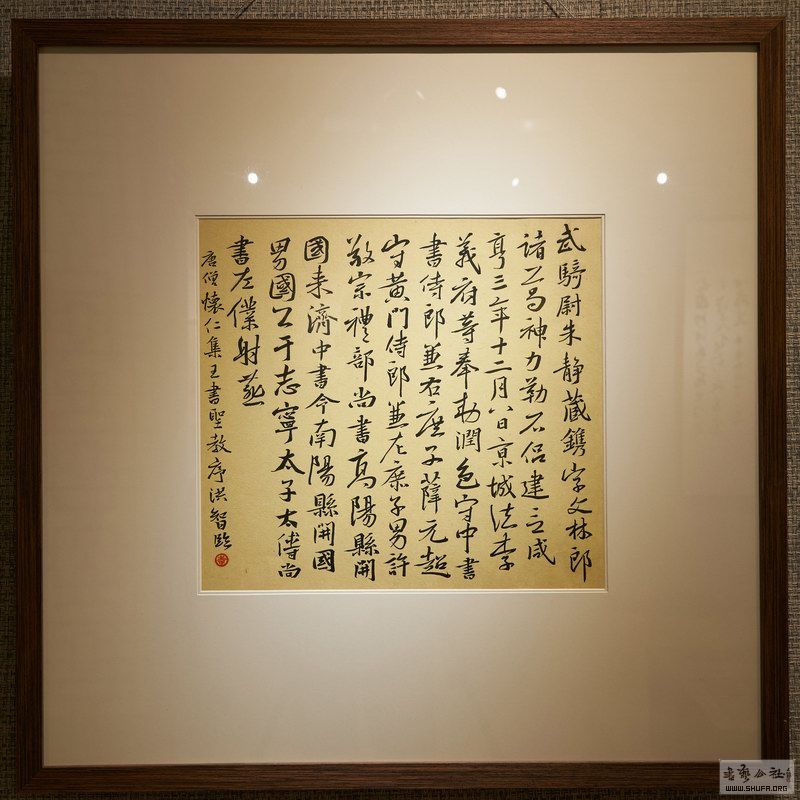 武騎尉朱静藏鐫字文林郎
諸葛神力勒石侣建立咸
亨三年十二月八日京城法李
義府等奉勅潤色守中書
書侍郎兼右庶子薛元超
守黄門侍郎兼左庶子男許
敬宗禮部尚書高陽縣開
國来濟中書令南陽縣開國
男國公于志寧太子太傅尚
書左僕射燕
唐僧懷仁集王書聖教序洪智臨
WWW.SHUFA.ORG